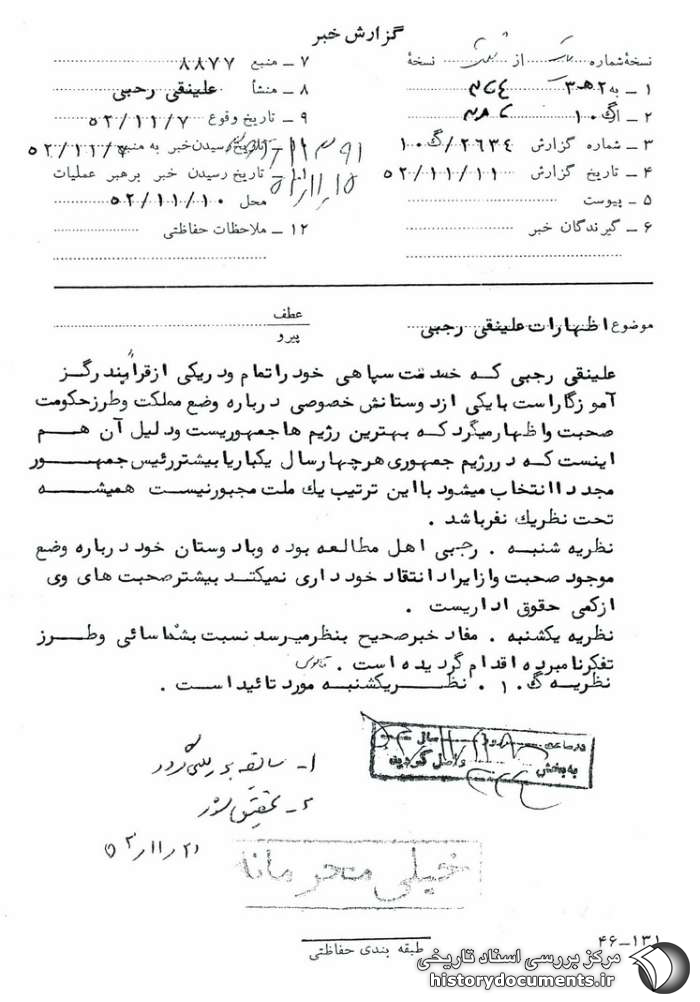 گزارش خبر
نسخهٔ شماره از نسخهٔ
۱ ـ به ۳هـ۲
۲ ـ از ک ۱۰
۳ ـ شماره گزارش ۱۰ک/۲۶۳۴
۴ ـ تاریخ گزارش ۵۲/۱۱/۱۱
۵ ـ پیوست
۶ ـ گیرندگان خبر
۷ ـ منبع ۸۸۷۷
۸ ـ منشأ علینقی رجبی
۹ ـ تاریخ وقوع ۵۲/۱۱/۷
تاریخ رسیدن خبر به منبع ۵۲/۱۱/۷
تاریخ رسیدن خبر برهبر عملیات
محل ۵۲/۱۱/۱۰
۱۲ ـ ملاحظات حفاظتی
۵۲/۱۱/۱۵
موضوع اظهارات علینقی رجبی
عطف
پیرو
علینقی رجبی که خدمت سپاهی خود را تمام و در یکی از قراء بندر گز
آموزگار است با یکی از دوستانش خصوصی درباره وضع مملکت و طرز حکومت
صحبت و اظهار میگرد که بهترین رژیم ها جمهوریست و دلیل آن هم
اینست که در رژیم جمهوری هر چهار سال یکبار یا بیشتر رئیس جمهور
مجدداً انتخاب میشود با این ترتیب یك ملت مجبور نیست همیشه
تحت نظر یك نفر باشد .
نظریه شنبه . رجبی اهل مطالعه بوده و با دوستان خود درباره وضع
موجود صحبت و از ایراد انتقاد خود داری نمیکند بیشتر صحبت های وی
از کمی حقوق اداریست .
نظریه یکشنبه . مفاد خبر صحیح بنظر میرسد نسبت بشناسائی و طرز
تفکر نامبرده اقدام گردیده است .
نظریه ک ۱۰ . نظر یکشنبه مورد تائید است .
در ساعت سال
به بخش واصل گردید
۱ـ سابقه بررسی گردد
۲ـ تحقیق شود
۵۲/۱۱/۲۱
خیلی محرمانه
۴۶-۱۳۱
طبقه بندی حفاظتی
مرکز بررسی اسناد تاریخی
historydocuments.ir